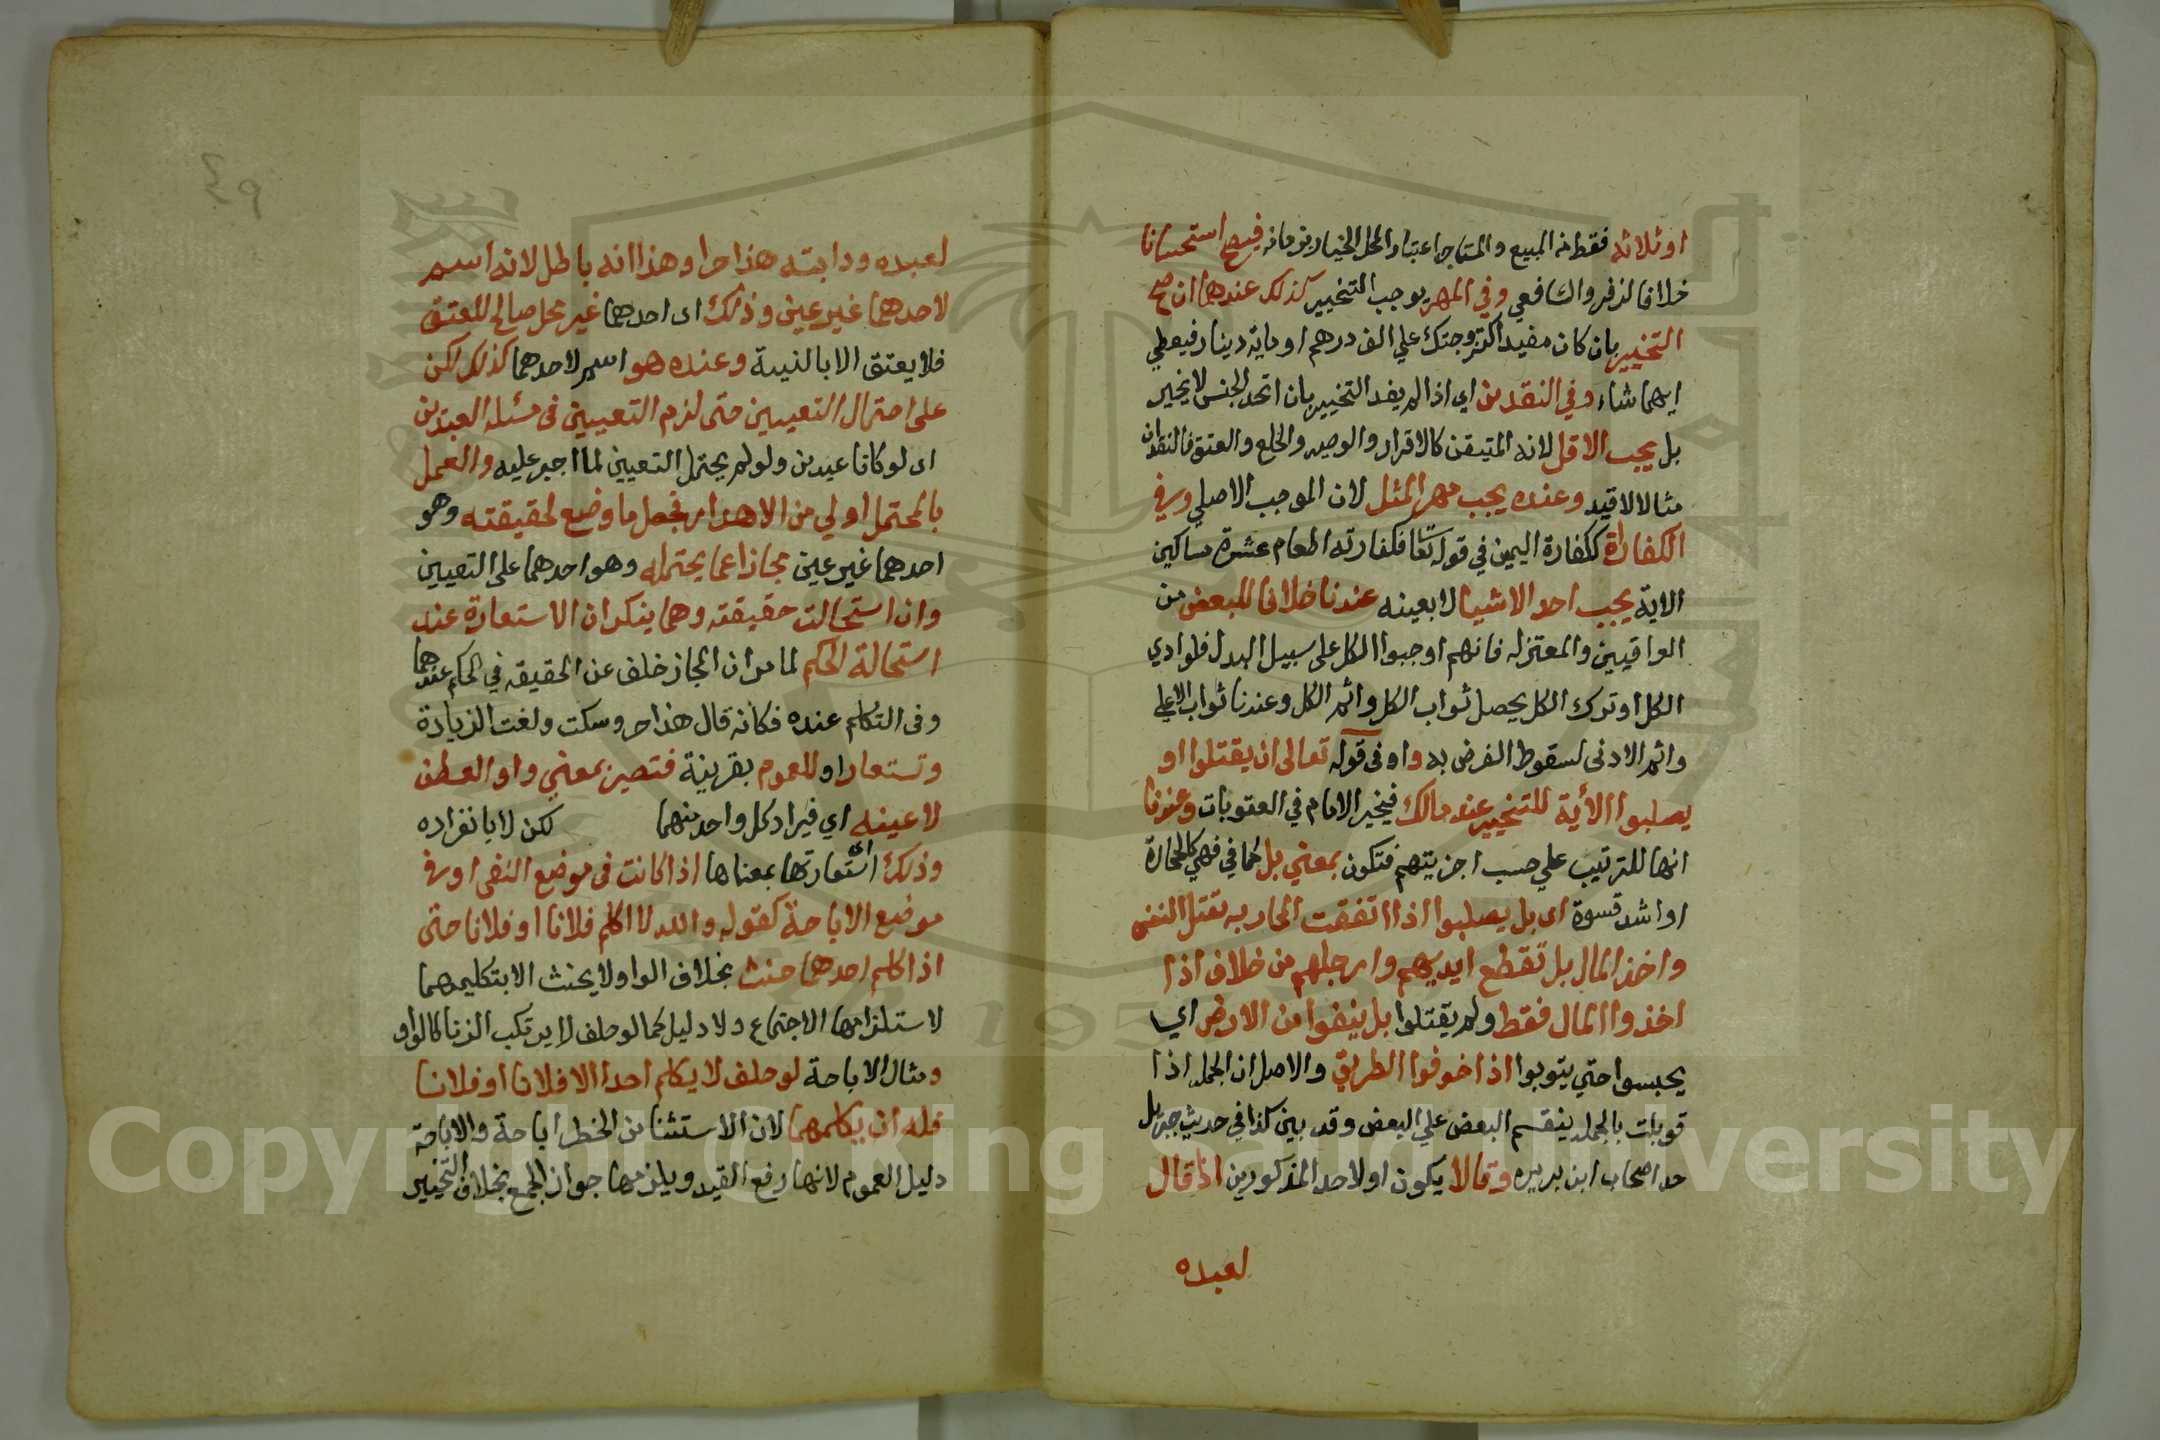 او ثلاثه فقط في المبيع والمستاجر اعتبارا لمحل الخيار بزمانه فيصح استحسانا
خلافا لزفر والشافعي وفي المهر يوجب التخيير كذلك عندهما ان صح
التخيير بان كان مفيدا كتزوجتك علي الف درهم او ماية دينار فيعطي
ايهما شاء وفي النقدين اي اذا لم يفد التخيير بان اتحد الجنس لا يخير
بل يجب الاقل لانه المتيقن كالاقرار والوصيه والخلع والعتق فالنقدان
مثالا لا قيد وعنده يجب مهر المثل لان الموجب الاصلي وفي
الكفارة ككفارة اليمين في قوله تعا فكفارته اطعام عشرة مساكين
الاية يجب احد الاشيا لا بعينه عندنا خلافا للبعض من
العراقيين والمعتزله فانهم اوجبوا الكل على سبيل البدل فلو ادي
الكل او ترك الكل يحصل ثواب الكل واثم الكل وعندنا ثواب الاعلي
واثم الادنى لسقوط الفرض به واو في قوله تعالى ان يقتلوا او
يصلبوا الأية للتخيير عند مالك فيخير الامام في العقوبات وعندنا
انها للترتيب علي حسب اجزيتهم فتكون بمعني بل كما في فهي كالحجارة
او اشد قسوة اى بل يصلبوا اذا اتفقت المحاربه بقتل النفس
واخذ المال بل تقطع ايديهم وارجلهم من خلاف اذا
اخذوا المال فقط ولم يقتلوا بل ينفوا من الارض اي
يحبسوا حتي يتوبوا اذا خوفوا الطريق والاصل ان الجمله اذا
قوبلت بالجمله ينقسم البعض علي البعض وقد بين كذا في حديث جبريل
حد اصحاب ابن بريره وقالا يكون او لاحد المذكورين اذ قال
لعبده
٤٩
لعبده ودابته هذا حر او هذا انه باطل لانه اسم
لاحدهما غير عين وذلك اى احدهما غير محل صالح للعتق
فلا يعتق الا بالنية وعنده هو اسم لاحدهما كذلك لكن
على احتمال التعيين حتى لزم التعيين في مسئله العبدين
اى لو كانا عبدين ولو لم يحتمل التعيين لما اجبر عليه والعمل
بالمحتمل اولي من الاهدار فجعل ما وضع لحقيقته وهو
احدهما غير عين مجازا عما يحتمله وهو احدهما على التعيين
وان استحالت حقيقته وهما ينكران الاستعارة عند
استحالة الحكم لما مر ان المجاز خلف عن الحقيقه في الحكم عندهما
وفي التكلم عنده فكانه قال هذا حر وسكت ولغت الزيادة
وتستعار او للعموم بقرينة فتصير بمعني واو العطف
لا عينه اي فيراد كل واحد منهما لكن لا بانفراده
وذلك اي استعارتها بمعناها اذا كانت في موضع النفى او في
موضع الاباحة كقوله والله لا اكلم فلانا او فلانا حتى
اذا كلم احدهما حنث بخلاف الواو لا يحنث الا بتكليمهما
لاستلزامها الاجتماع ولا دليل كما لو حلف لا يرتكب الزنا كالواو
ومثال الاباحة لو حلف لا يكلم احدا الا فلانا او فلانا
فله ان يكلمهما لان الاستثنا من الخطر اباحة والاباحة
دليل العموم لانها رفع القيد ويلزمها جواز الجمع بخلاف التخيير
Copyright © King Saud University